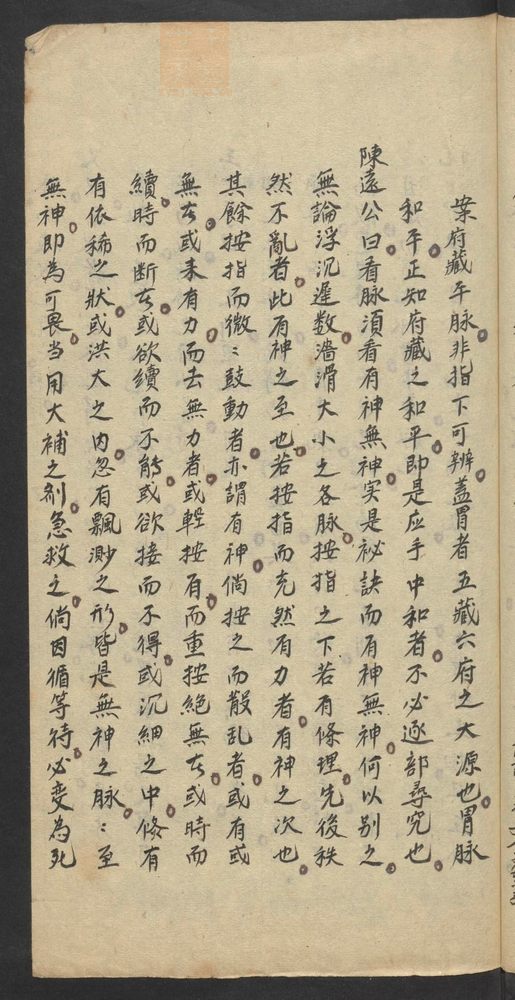 案府藏平脉非指下可辨蓋胃者五藏六府之大源也胃脉
和平正知府藏之和平即是应手中和者不必逐部尋究也
陳遠公曰看脉須看有神無神実是祕訣而有神無神何以别之
無論浮沉遲数濇滑大小之各脉按指之下若有條理先後秩
然不亂者此有神之至也若按指而充然有力者有神之次也
其餘按指而微〻鼓動者亦謂有神倘按之而散乱者或有或
無者或来有力而去無力者或輕按有而重按絶無者或時而
續時而断者或欲續而不能或欲接而不得或沉細之中倏有
有依稀之狀或洪大之内忽有飄渺之形皆是無神之脉〻至
無神即為可畏当用大補之剤急救之倘因循等待必变為死